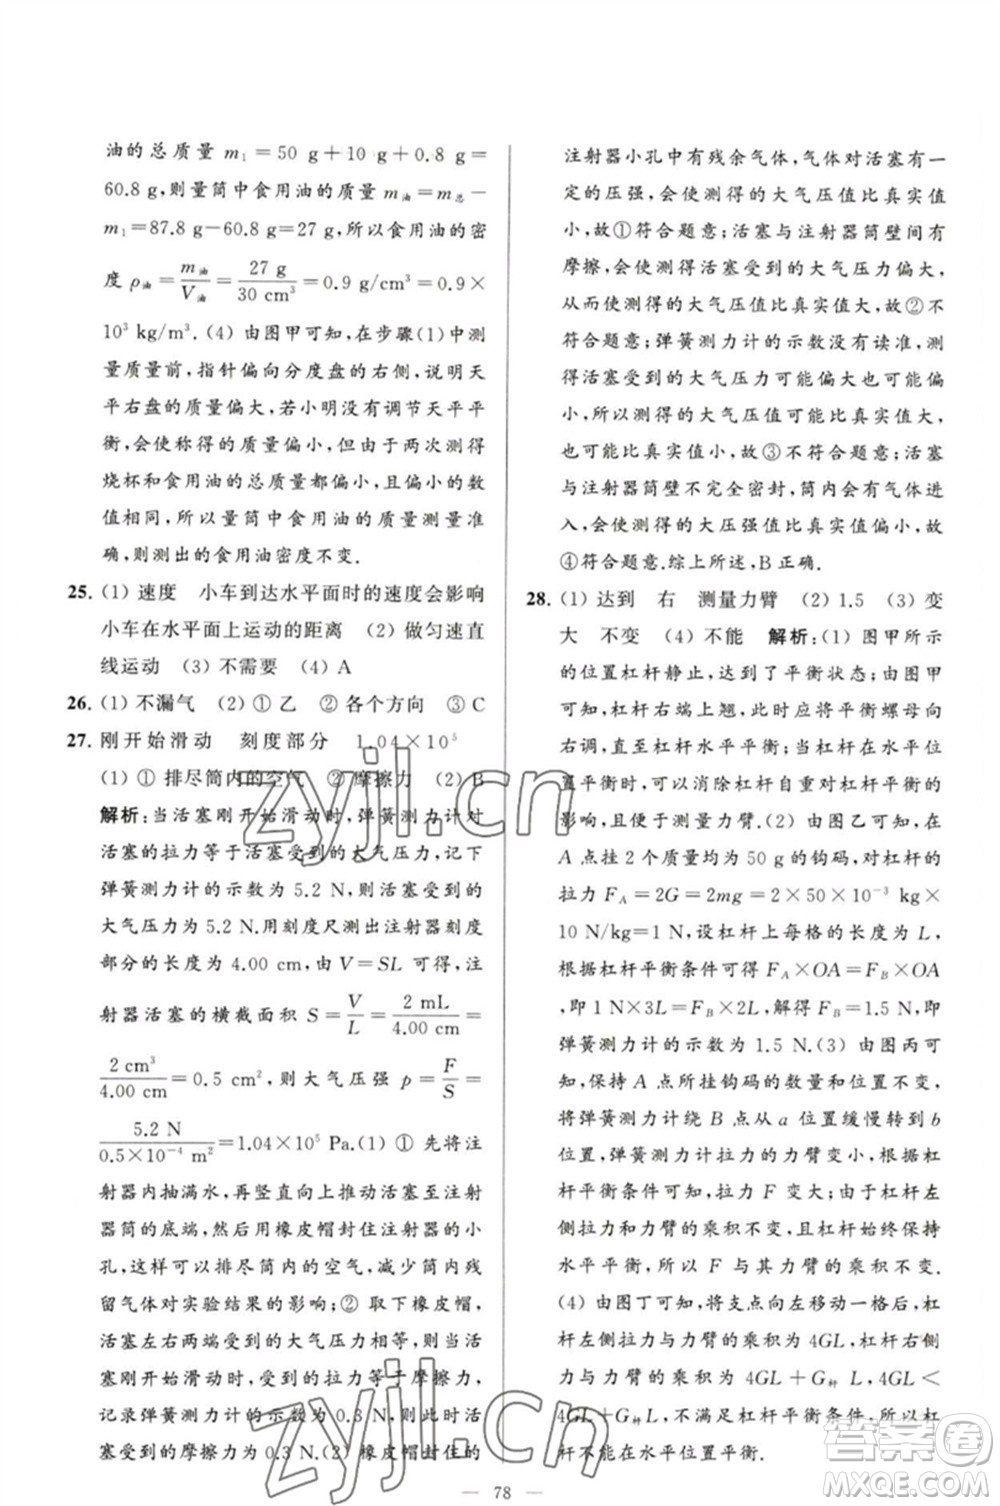 油的总质量 m₁＝50 g＋10 g＋0.8 g＝
60.8 g，则量筒中食用油的质量 m油＝m总－
m₁＝87.8 g－60.8 g＝27 g，所以食用油的密
度 ρ油＝m油/V油＝27 g/30 cm³＝0.9 g/cm³＝0.9×
10³ kg/m³．(4) 由图甲可知，在步骤(1)中测
量质量前，指针偏向分度盘的右侧，说明天
平右盘的质量偏大，若小明没有调节天平平
衡，会使称得的质量偏小，但由于两次测得
烧杯和食用油的总质量都偏小，且偏小的数
值相同，所以量筒中食用油的质量测量准
确，则测出的食用油密度不变．
25. (1) 速度 小车到达水平面时的速度会影响
小车在水平面上运动的距离 (2) 做匀速直
线运动 (3) 不需要 (4) A
26. (1) 不漏气 (2) ① 乙 ② 各个方向 ③ C
27. 刚开始滑动 刻度部分 1.04×10⁵
(1) ① 排尽筒内的空气 ② 摩擦力 (2) B
解析：当活塞刚开始滑动时，弹簧测力计对
活塞的拉力等于活塞受到的大气压力，记下
弹簧测力计的示数为 5.2 N，则活塞受到的
大气压力为 5.2 N．用刻度尺测出注射器刻度
部分的长度为 4.00 cm，由 V＝SL 可得，注
射器活塞的横截面积 S＝V/L＝2 mL/4.00 cm＝
2 cm³/4.00 cm＝0.5 cm²，则大气压强 p＝F/S＝
5.2 N/0.5×10⁻⁴ m²＝1.04×10⁵ Pa．(1) ① 先将注
射器内抽满水，再竖直向上推动活塞至注射
器筒的底端，然后用橡皮帽封住注射器的小
孔，这样可以排尽筒内的空气，减少筒内残
留气体对实验结果的影响；② 取下橡皮帽，
活塞左右两端受到的大气压力相等，则当活
塞刚开始滑动时，受到的拉力等于摩擦力，
记录弹簧测力计的示数为 0.3 N，则此时活
塞受到的摩擦力为 0.3 N．(2) 橡皮帽封住的
注射器小孔中有残余气体，气体对活塞有一
定的压强，会使测得的大气压值比真实值
小，故①符合题意；活塞与注射器筒壁间有
摩擦，会使测得活塞受到的大气压力偏大，
从而使测得的大气压值比真实值大，故②
不符合题意；弹簧测力计的示数没有读准，测
得活塞受到的大气压力可能偏大也可能偏
小，所以测得的大气压值可能比真实值大，
也可能比真实值小，故③不符合题意；活塞
与注射器筒壁不完全密封，筒内会有气体进
入，会使测得的大压强值比真实值偏小，故
④符合题意．综上所述，B 正确．
28. (1) 达到 右 测量力臂 (2) 1.5 (3) 变
大 不变 (4) 不能 解析：(1) 图甲所示
的位置杠杆静止，达到了平衡状态；由图甲
可知，杠杆右端上翘，应将平衡螺母向右调
节，直至杠杆水平平衡；使杠杆在水平位
置平衡时，可以消除杠杆自重对杠杆平衡的
影响，且便于测量力臂．(2) 由图乙可知，在
A 点挂 2 个质量均为 50 g 的钩码，对杠杆的
拉力 F_A＝2G＝2mg＝2×50×10⁻³ kg×
10 N/kg＝1 N，设杠杆上每格的长度为 L，
根据杠杆平衡条件可得 F_A×OA＝F_B×OA，
即 1 N×3L＝F_B×2L，解得 F_B＝1.5 N，即
弹簧测力计的示数为 1.5 N．(3) 由图丙可
知，保持 A 点所挂钩码的数量和位置不变，
将弹簧测力计绕 B 点从 a 位置缓慢转到 b
位置，弹簧测力计拉力的力臂变小，根据杠
杆平衡条件可知，拉力 F 变大；由于杠杆左
侧拉力和力臂的乘积不变，且杠杆始终保持
水平平衡，所以 F 与其力臂的乘积不变．
(4) 由图丁可知，将支点向左移动一格后，杠
杆左侧力与力臂的乘积为 4GL，杠杆右侧
力与力臂的乘积为 4GL＋G杆L，4GL＜
4GL＋G杆L，不满足杠杆平衡条件，所以杠
杆不能在水平位置平衡．
— 78 —
zyjl.cn
zyjl.cn
答案圈
MXQE.COM